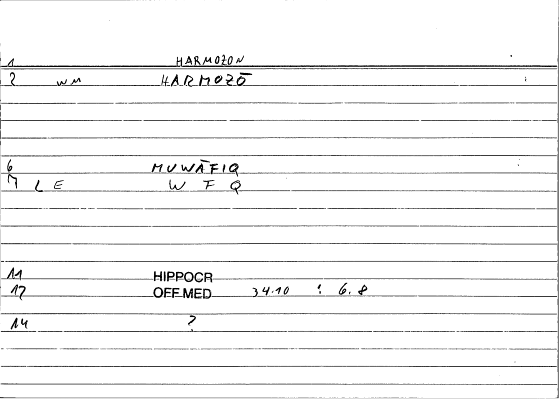 1 HARMOZON
2 WM HARMOZŌ
6 MUWĀFIQ
7 LE WFQ
11 HIPPOCR
12 OFF.MED 34.10 : 6.8
14 ?